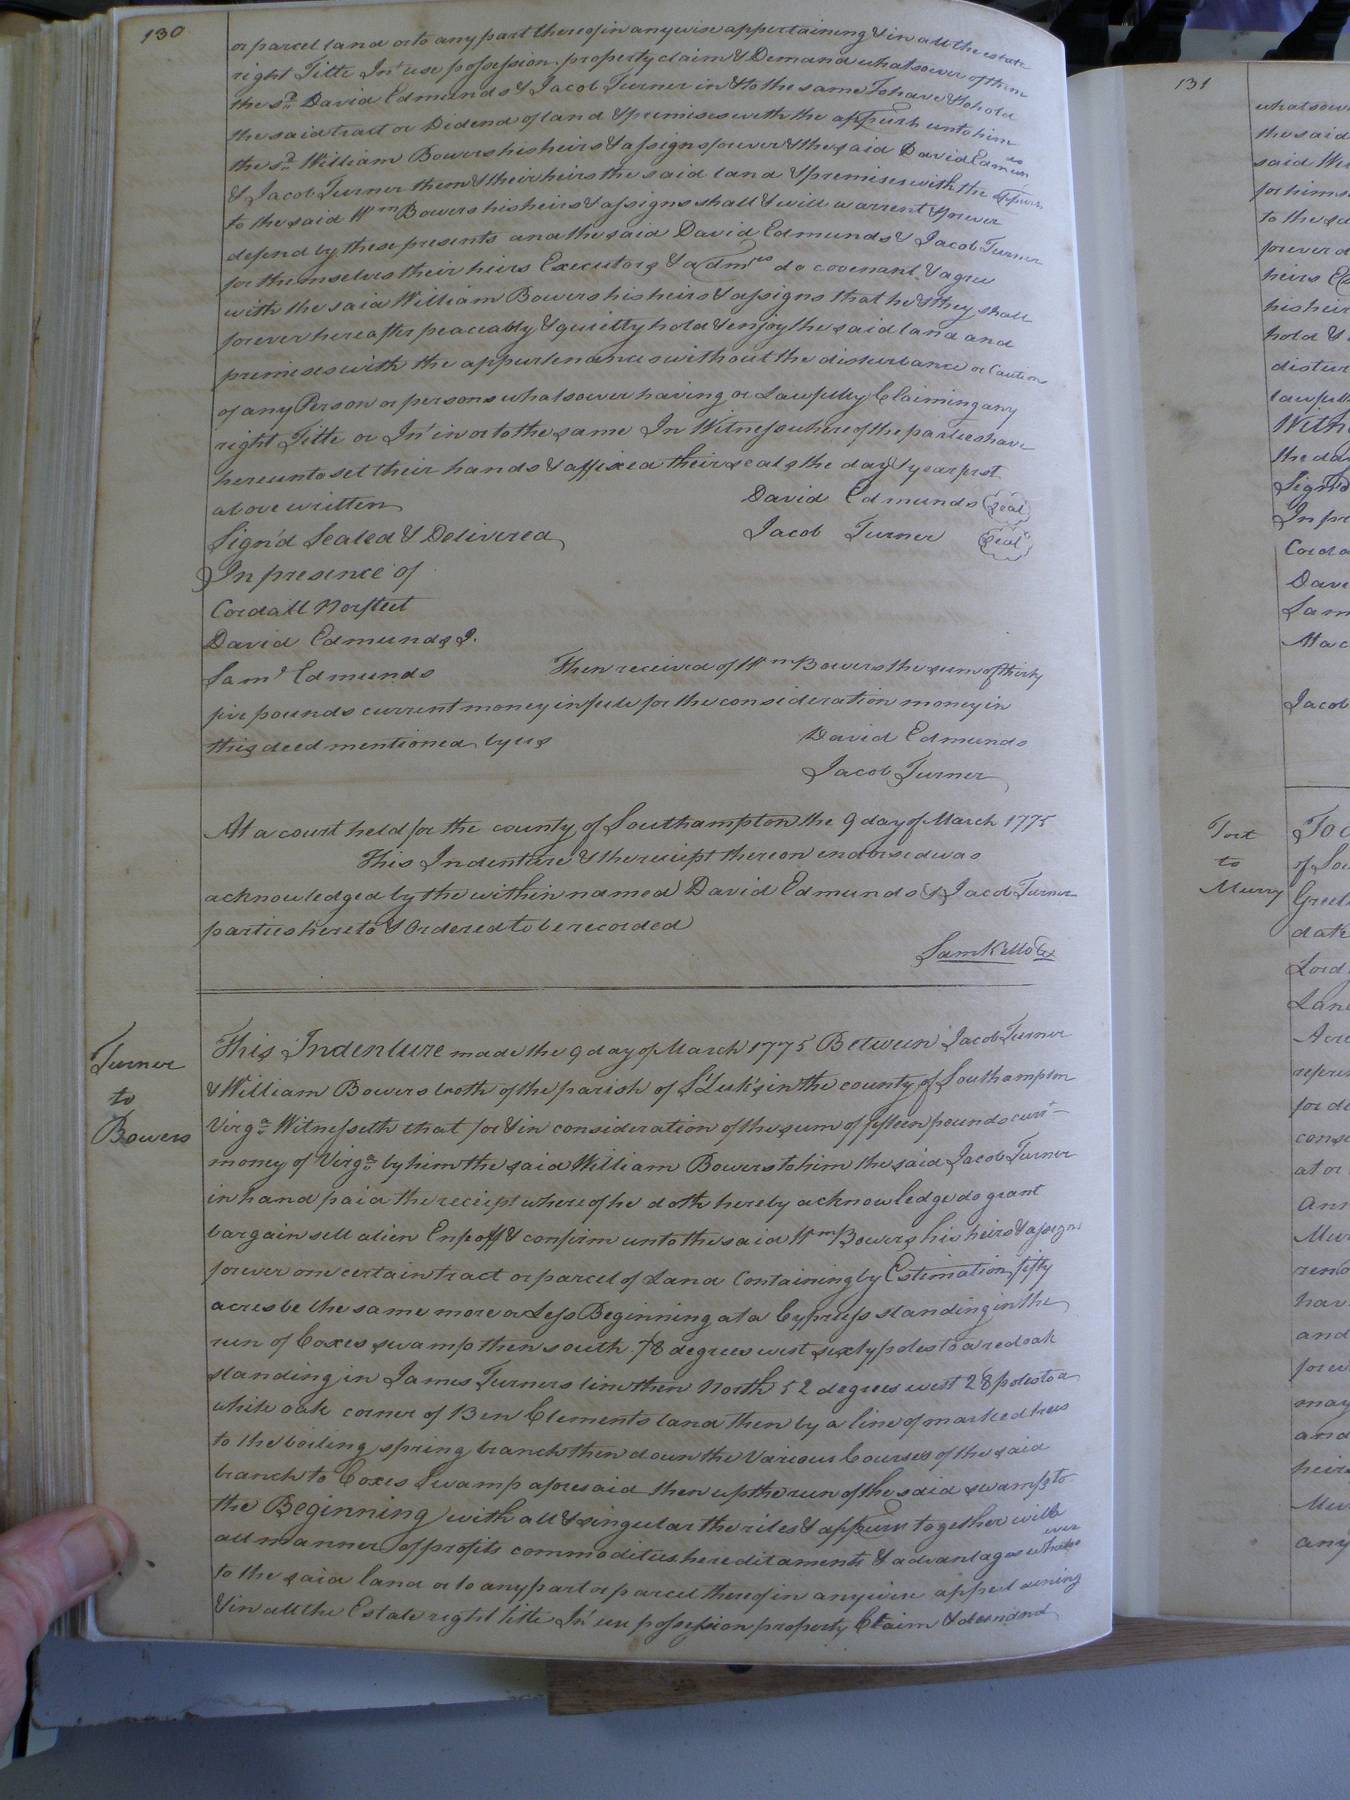 130
or parcel land or to any part thereof in any wise appertaining & in all the estate
right Title Int use possession property claim & Demand whatsoever of them
the sd David Edmunds & Jacob Turner in & to the same To have & to hold
the said tract or Didend of land & premises with the appurts unto him
the sd William Bowers his heirs & assigns forever & the said David Edmunds
& Jacob Turner them & their heirs the said land & premises with the appurts
to the said Wm Bowers his heirs & assigns shall & will warrent & forever
defend by these presents and the said David Edmunds & Jacob Turner
for themselves their heirs Executors & admrs do covenant & agree
with the said William Bowers his heirs & assigns that he & they shall
forever hereafter peaceably & quietly hold & enjoy the said land and
premises with the appurtenances without the disturbance or Caution
of any Person or persons whatsoever having or Lawfully Claiming any
right Title or Int in or to the same In Witness whereof the parties have
hereunto set their hands & affixed their seals the day & year first
above written David Edmunds (Seal)
Sign'd Sealed & Delivered Jacob Turner (Seal)
In presence of
Cordall Norfleet
David Edmunds J.
Saml Edmunds Then received of Wm Bowers the sum of thirty
five pounds current money in full for the consideration money in
this deed mentioned by us David Edmunds
Jacob Turner
At a court held for the county of Southampton the 9 day of March 1775
This Indenture & the receipt thereon endorsed was
acknowledged by the within named David Edmunds & Jacob Turner
parties hereto & Ordered to be recorded
Sam Kello Ck
Turner
to
Bowers
This Indenture made the 9 day of March 1775 Between Jacob Turner
& William Bowers both of the parish of St Luk's in the county of Southampton
Virga Witnesseth that for & in consideration of the sum of fifteen pounds curt
money of Virga by him the said William Bowers to him the said Jacob Turner
in hand paid the receipt whereof he doth hereby acknowledge do grant
bargain sell alien Enfeoff & confirm unto the said Wm Bowers his heirs & assigns
forever one certain tract or parcel of Land Containing by Estimation fifty
acres be the same more or Less Beginning at a Cypress standing in the
run of Coxes swamp then south 78 degrees west sixty poles to a red oak
standing in James Turners line then North 52 degrees west 28 poles to a
white oak corner of Ben Clements land then by a line of marked trees
to the boiling spring branch then down the Various Courses of the said
branch to Coxes Swamp aforesaid then up the run of the said swamp to
the Beginning with all & singular the rites & appurts together with
all manner of profits commodities hereditaments & advantages whatso
ever
to the said land or to any part or parcel thereof in any wise appertaining
& in all the Estate right title Int use possession property Claim & demand
131
whatsoev
the said
said Wi
for hims
to the sa
forever d
heirs E
his heir
hold &
distur
lawfull
Witn
the da
Sign'd
In pr
Corda
Davi
Sam
At a c
Jacob
Tort
to
Murry
To a
of Sou
Greet
date
Lord
Land
Acre
repres
for di
cons
at or
Ann
Mur
ren
hav
and
forev
may
and
heirs
Mur
any